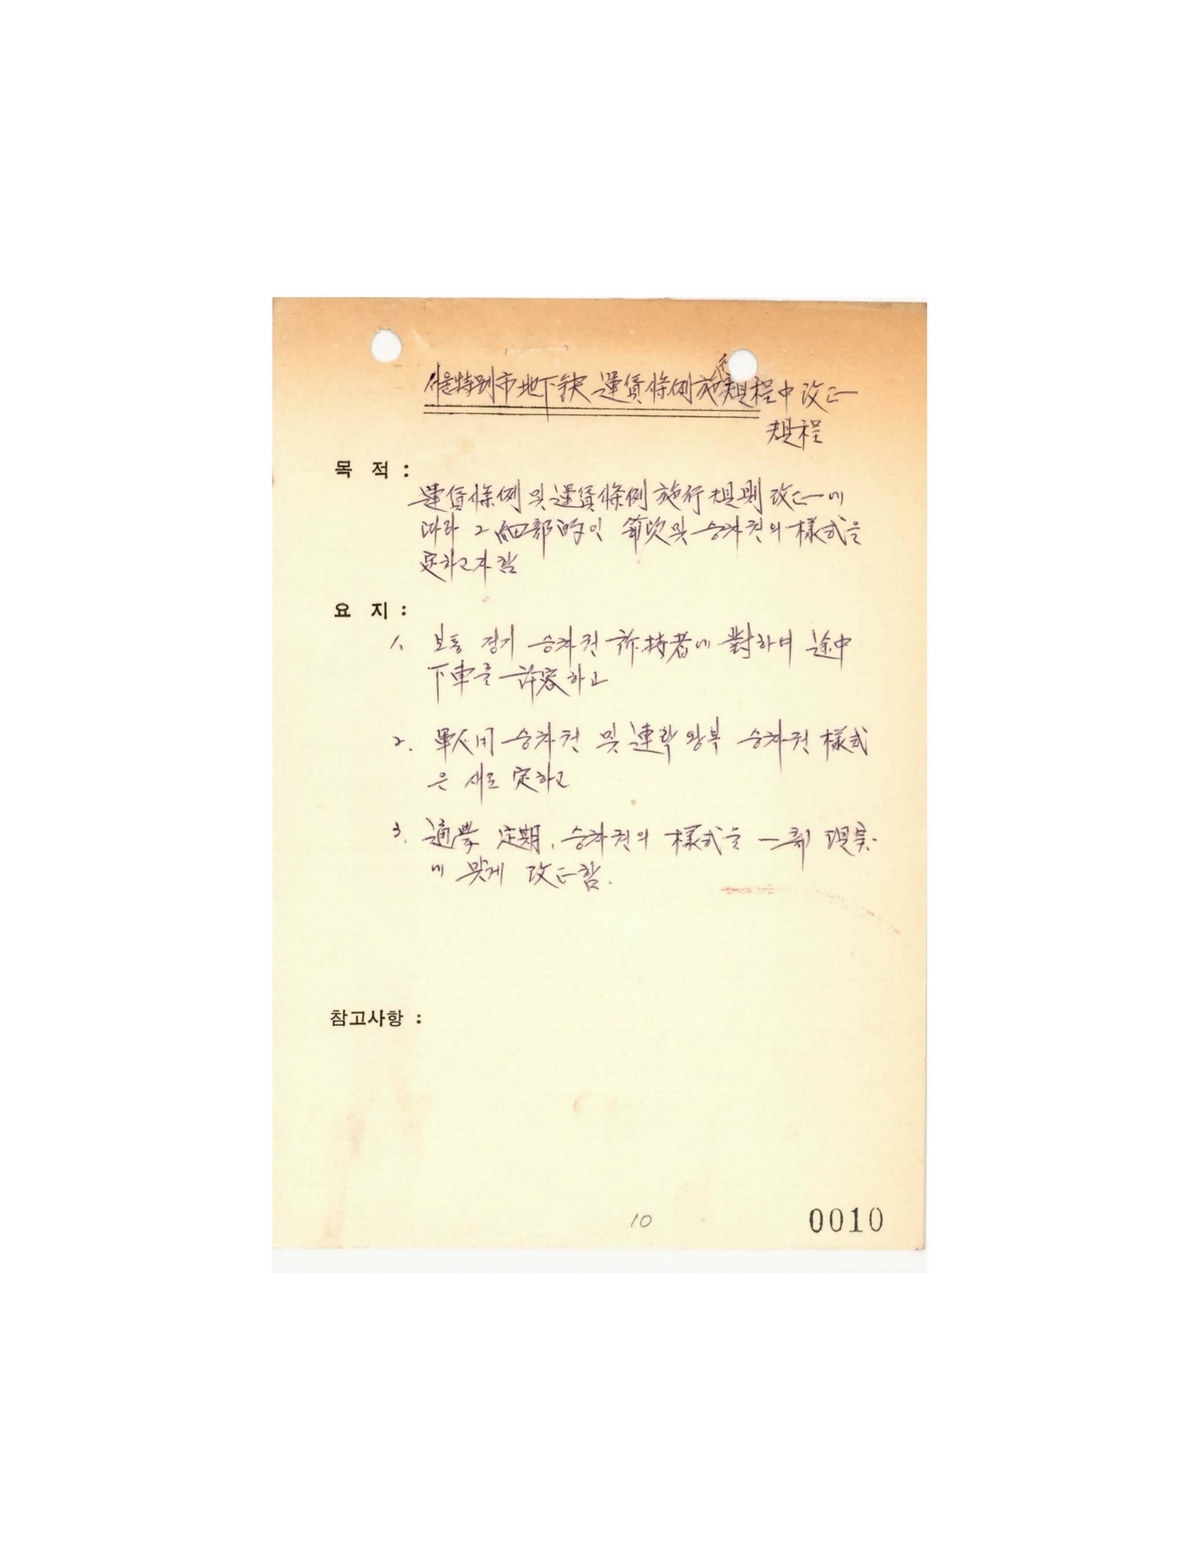 서울特別市地下鉄 運賃條例 施行規程中改正
規程
목 적 :
運賃條例 및 運賃條例 施行規則 改正에
따라 그 細部的인 節次 및 승차권의 樣式을
定하고자 함
요 지 :
1. 보통 정기 승차권 所持者에 對하여 途中
下車를 許容하고
2. 軍人用 승차권 및 連絡 왕복 승차권 樣式
은 새로 定하고
3. 通學 定期 승차권의 樣式을 一部 現実
에 맞게 改正함.
참고사항 :
10
0010